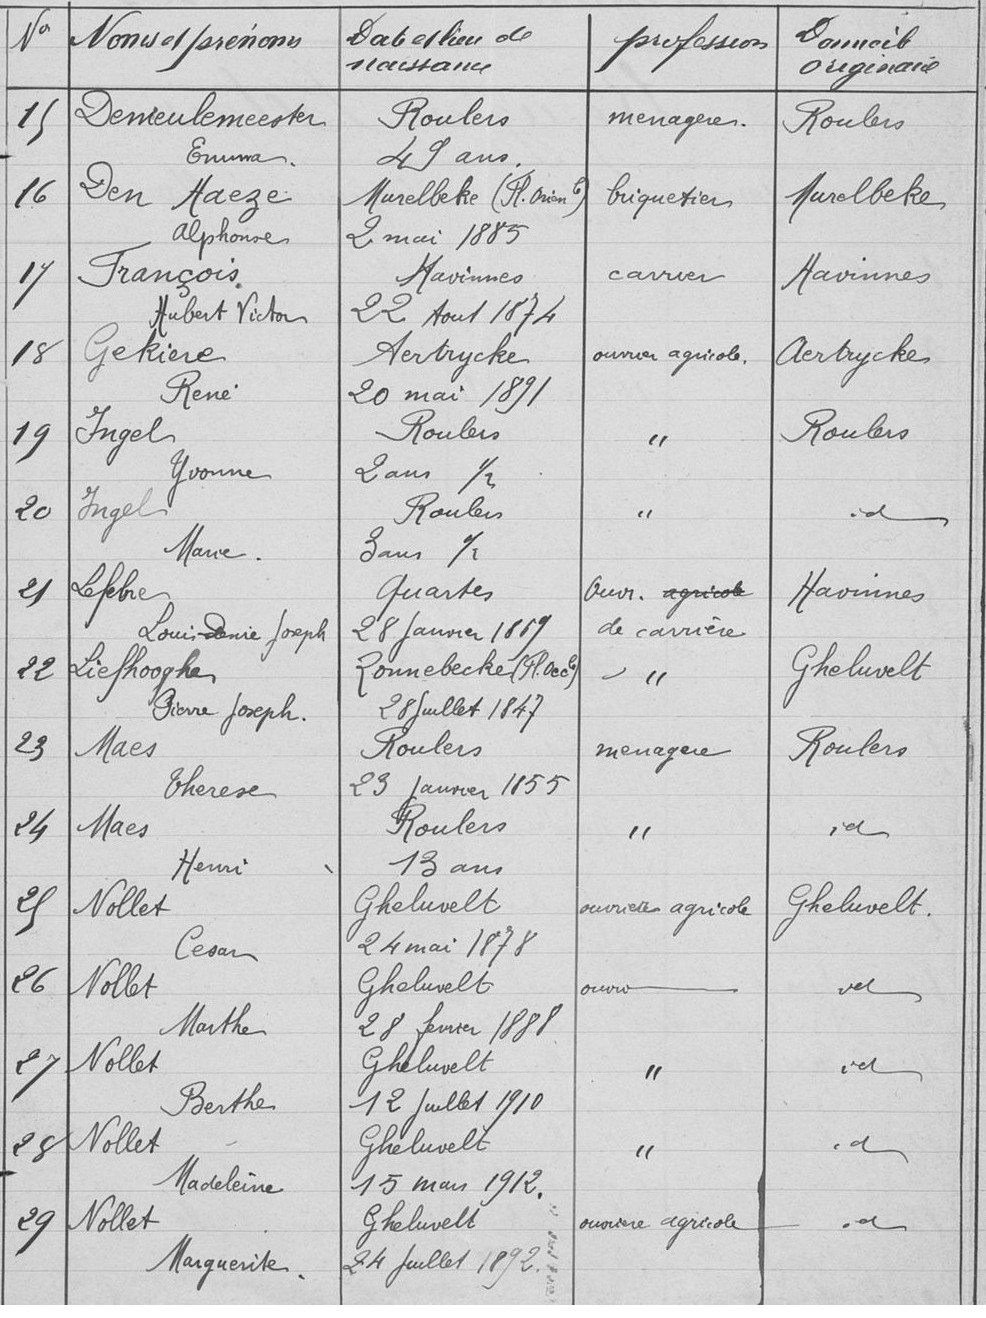 No Noms et prénoms Date et lieu de naissance profession Domicile originaire
15 Demeulemeester Roulers menagere. Roulers
Emma. 49 ans.
16 Den Haeze Murelbeke (Fl. Orient) briquetier Murelbeke
Alphonse 2 mai 1885
17 François. Havinnes carrier Havinnes
Hubert Victor 22 Aout 1874
18 Gekiere Aertrycke ouvrier agricole. Aertrycke
René 20 mai 1891
19 Ingel Roulers " Roulers
Yvonne 2 ans 1/2
20 Ingel Roulers " id
Marie. 3 ans 1/2
21 Lefebre Quartes Ouvr. agricole Havinnes
Louis Denie Joseph 28 Janvier 1869 de carrière
22 Liefhooghe Zonnebecke (Fl. Occ) " Gheluvelt
Pierre Joseph. 28 Juillet 1847
23 Maes Roulers menagere Roulers
Therese 23 Janvier 1855
24 Maes Roulers " id
Henri 13 ans
25 Nollet Gheluvelt ouvrier agricole Gheluvelt.
Cesar 24 mai 1878
26 Nollet Gheluvelt ouvr id
Marthe 28 fevrier 1888
27 Nollet Gheluvelt " id
Berthe 12 Juillet 1910
28 Nollet Gheluvelt " id
Madeleine 15 mars 1912.
29 Nollet Gheluvelt ouvriere agricole id
Marguerite. 24 Juillet 1892.